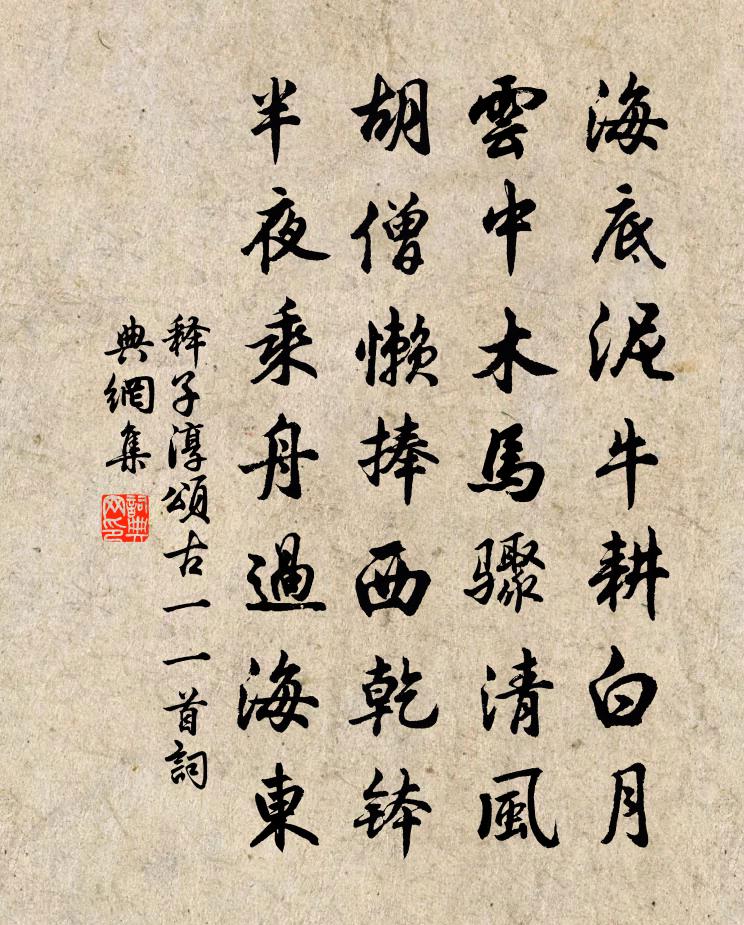 海底泥牛耕白月
雲中木馬驟清風
胡僧懶捧西乾鉢
半夜乘舟過海東
释子淳頌古一一首詞
典網集
詞典网印